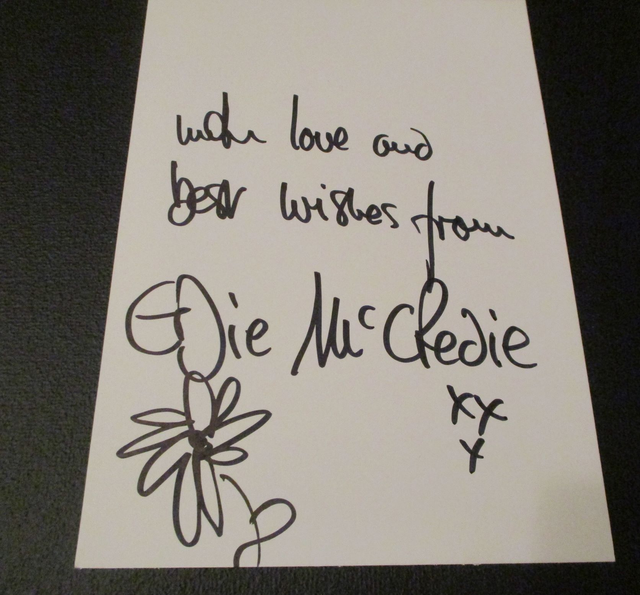 with love and
best wishes from
Edie McCredie
xx
x